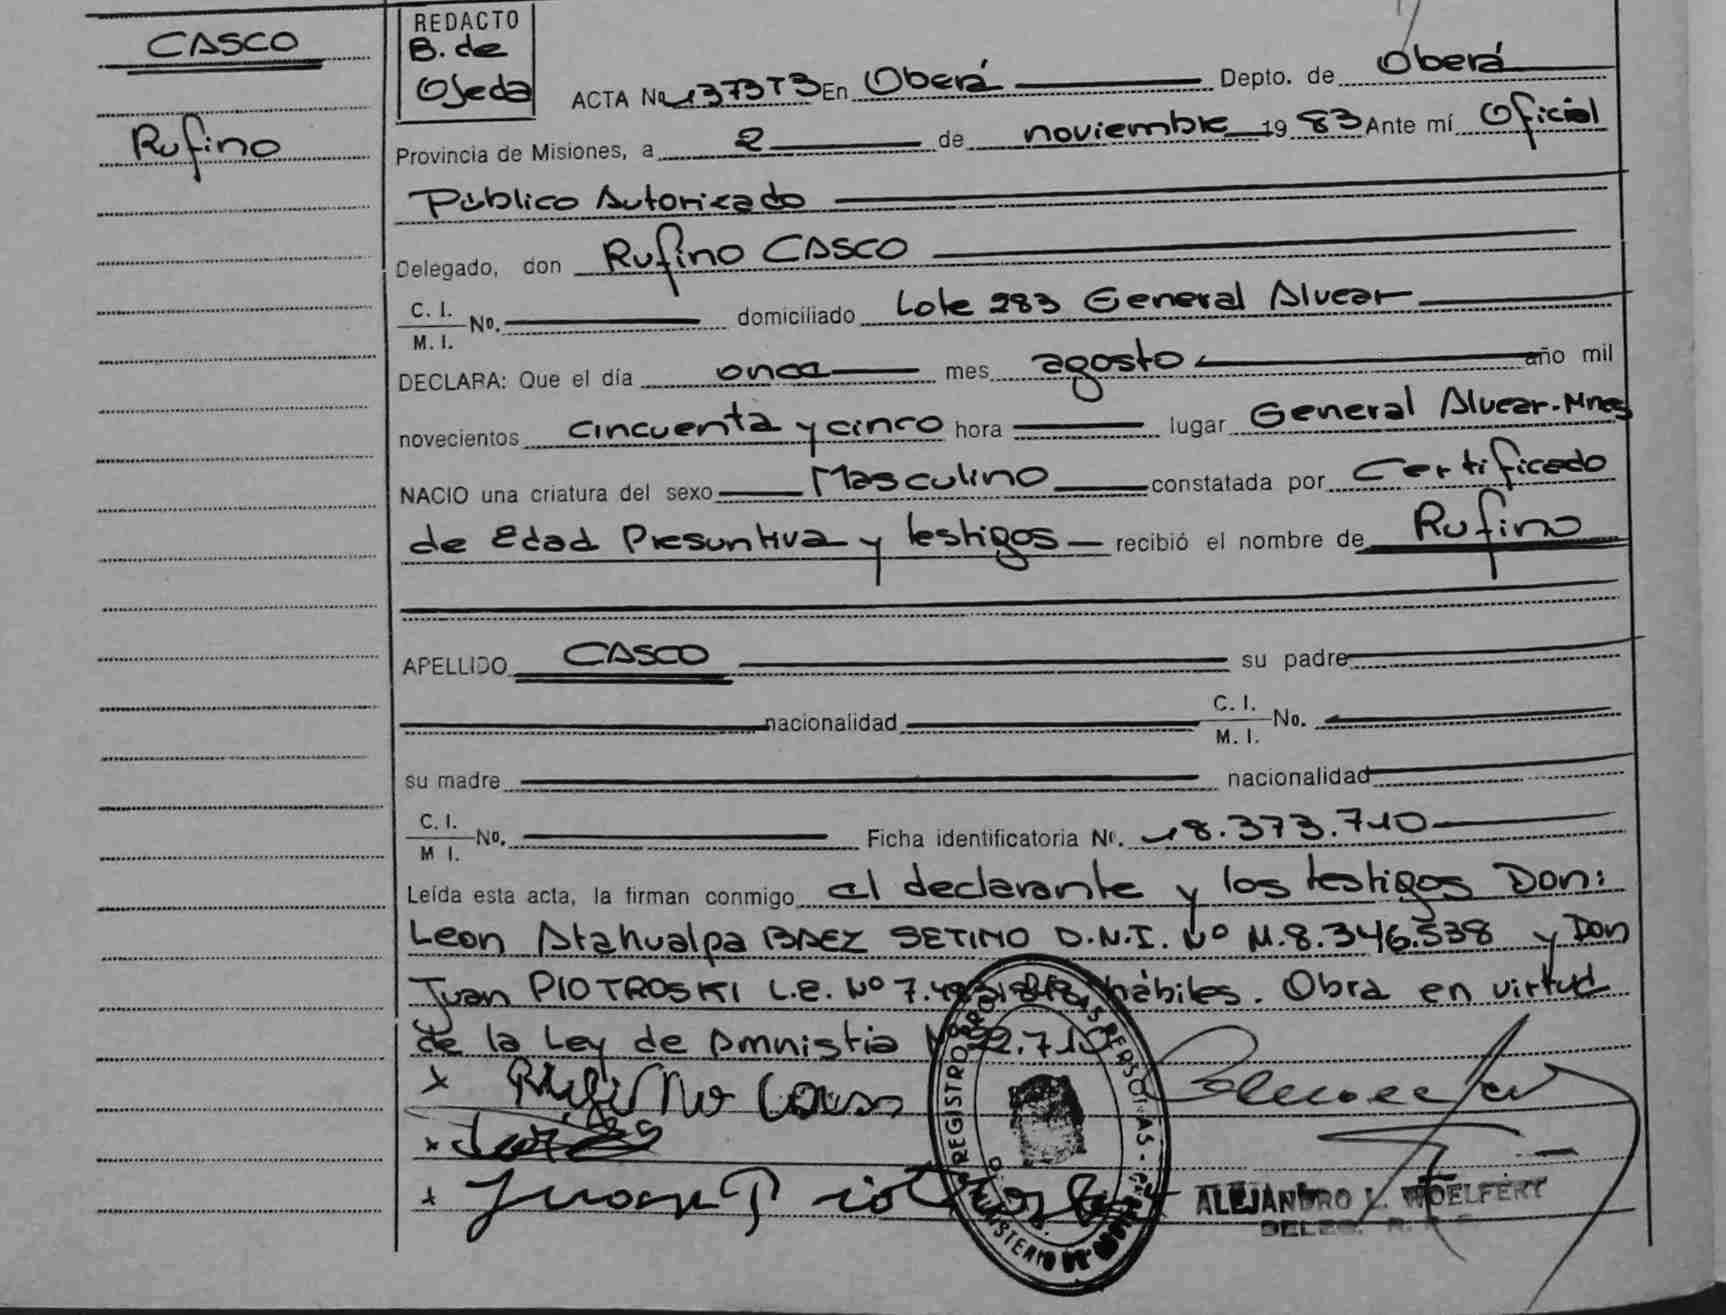 CASCO
Rufino
REDACTO
B. de
Ojeda
ACTA No 1373T3 En Oberá Depto. de Oberá
Provincia de Misiones, a 2 de noviembre 19 83 Ante mí Oficial
Público Autorizado
Delegado, don Rufino CASCO
C. I.
M. I. No. domiciliado Lote 283 General Alvear
DECLARA: Que el día once mes agosto año mil
novecientos cincuenta y cinco hora lugar General Alvear-Mnes
NACIO una criatura del sexo Masculino constatada por Certificado
de Edad Presuntiva y testigos recibió el nombre de Rufino
APELLIDO CASCO su padre
nacionalidad C. I.
M. I. No.
su madre nacionalidad
C. I.
M I. No. Ficha identificatoria No. 18.373.710
Leída esta acta, la firman conmigo el declarante y los testigos Don:
Leon Atahualpa BAEZ SETIMO D.N.I. Nº M.8.346.538 y Don
Juan PIOTROSKI L.E. Nº hábiles. Obra en virtud
de la Ley de Amnistia 22.710
x Rufino Casco
x
x Juan Piotroski
REGISTRO PERSONAS
MINISTERIO DE
ALEJANDRO L. WOELFERT
DELEG.